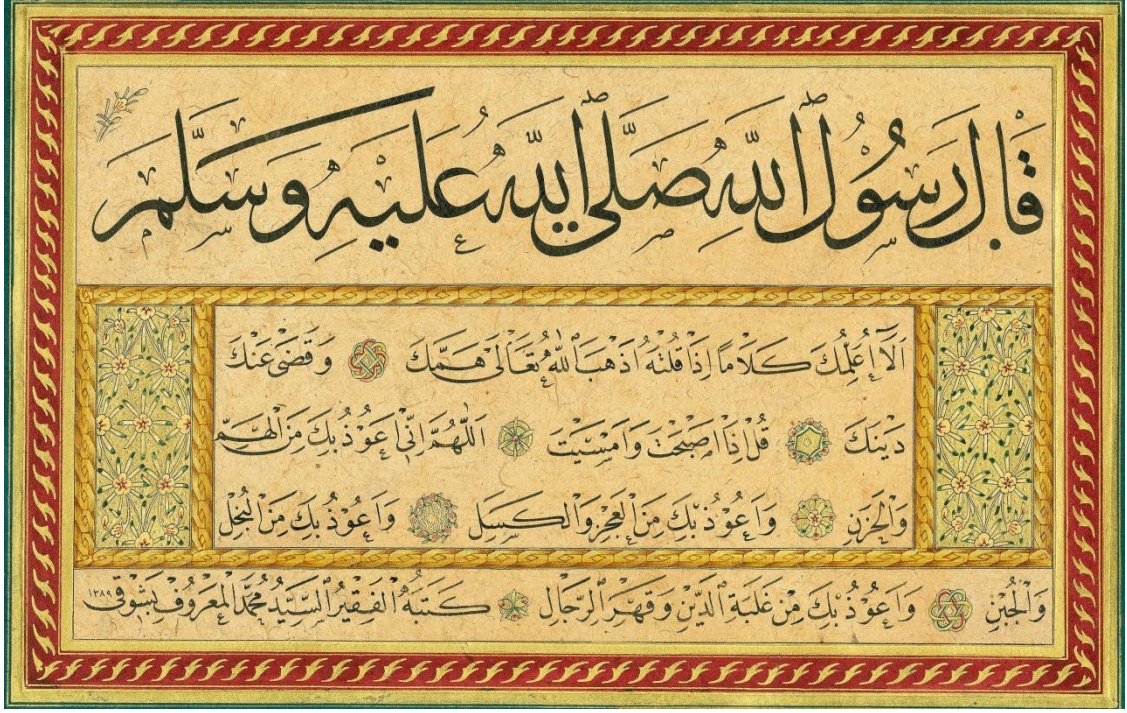 قَالَ رَسُولُ اللهِ صَلَّى اللهُ عَلَيْهِ وَسَلَّمَ
اَلَا اُعَلِّمُكَ كَلَامًا اِذَا قُلْتَهُ اَذْهَبَ اللهُ تَعَالَى هَمَّكَ وَقَضَى عَنْكَ
دَيْنَكَ قُلْ اِذَا اَصْبَحْتَ وَاَمْسَيْتَ اَللّٰهُمَّ اِنِّي اَعُوذُ بِكَ مِنَ الْهَمِّ
وَالْحَزَنِ وَاَعُوذُ بِكَ مِنَ الْعَجْزِ وَالْكَسَلِ وَاَعُوذُ بِكَ مِنَ الْبُخْلِ
وَالْجُبْنِ وَاَعُوذُ بِكَ مِنْ غَلَبَةِ الدَّيْنِ وَقَهْرِ الرِّجَالِ كَتَبَهُ الْفَقِيرُ السَّيِّدُ مُحَمَّدُ الْمَعْرُوفُ بِشَوْقِي ١٢٨٩